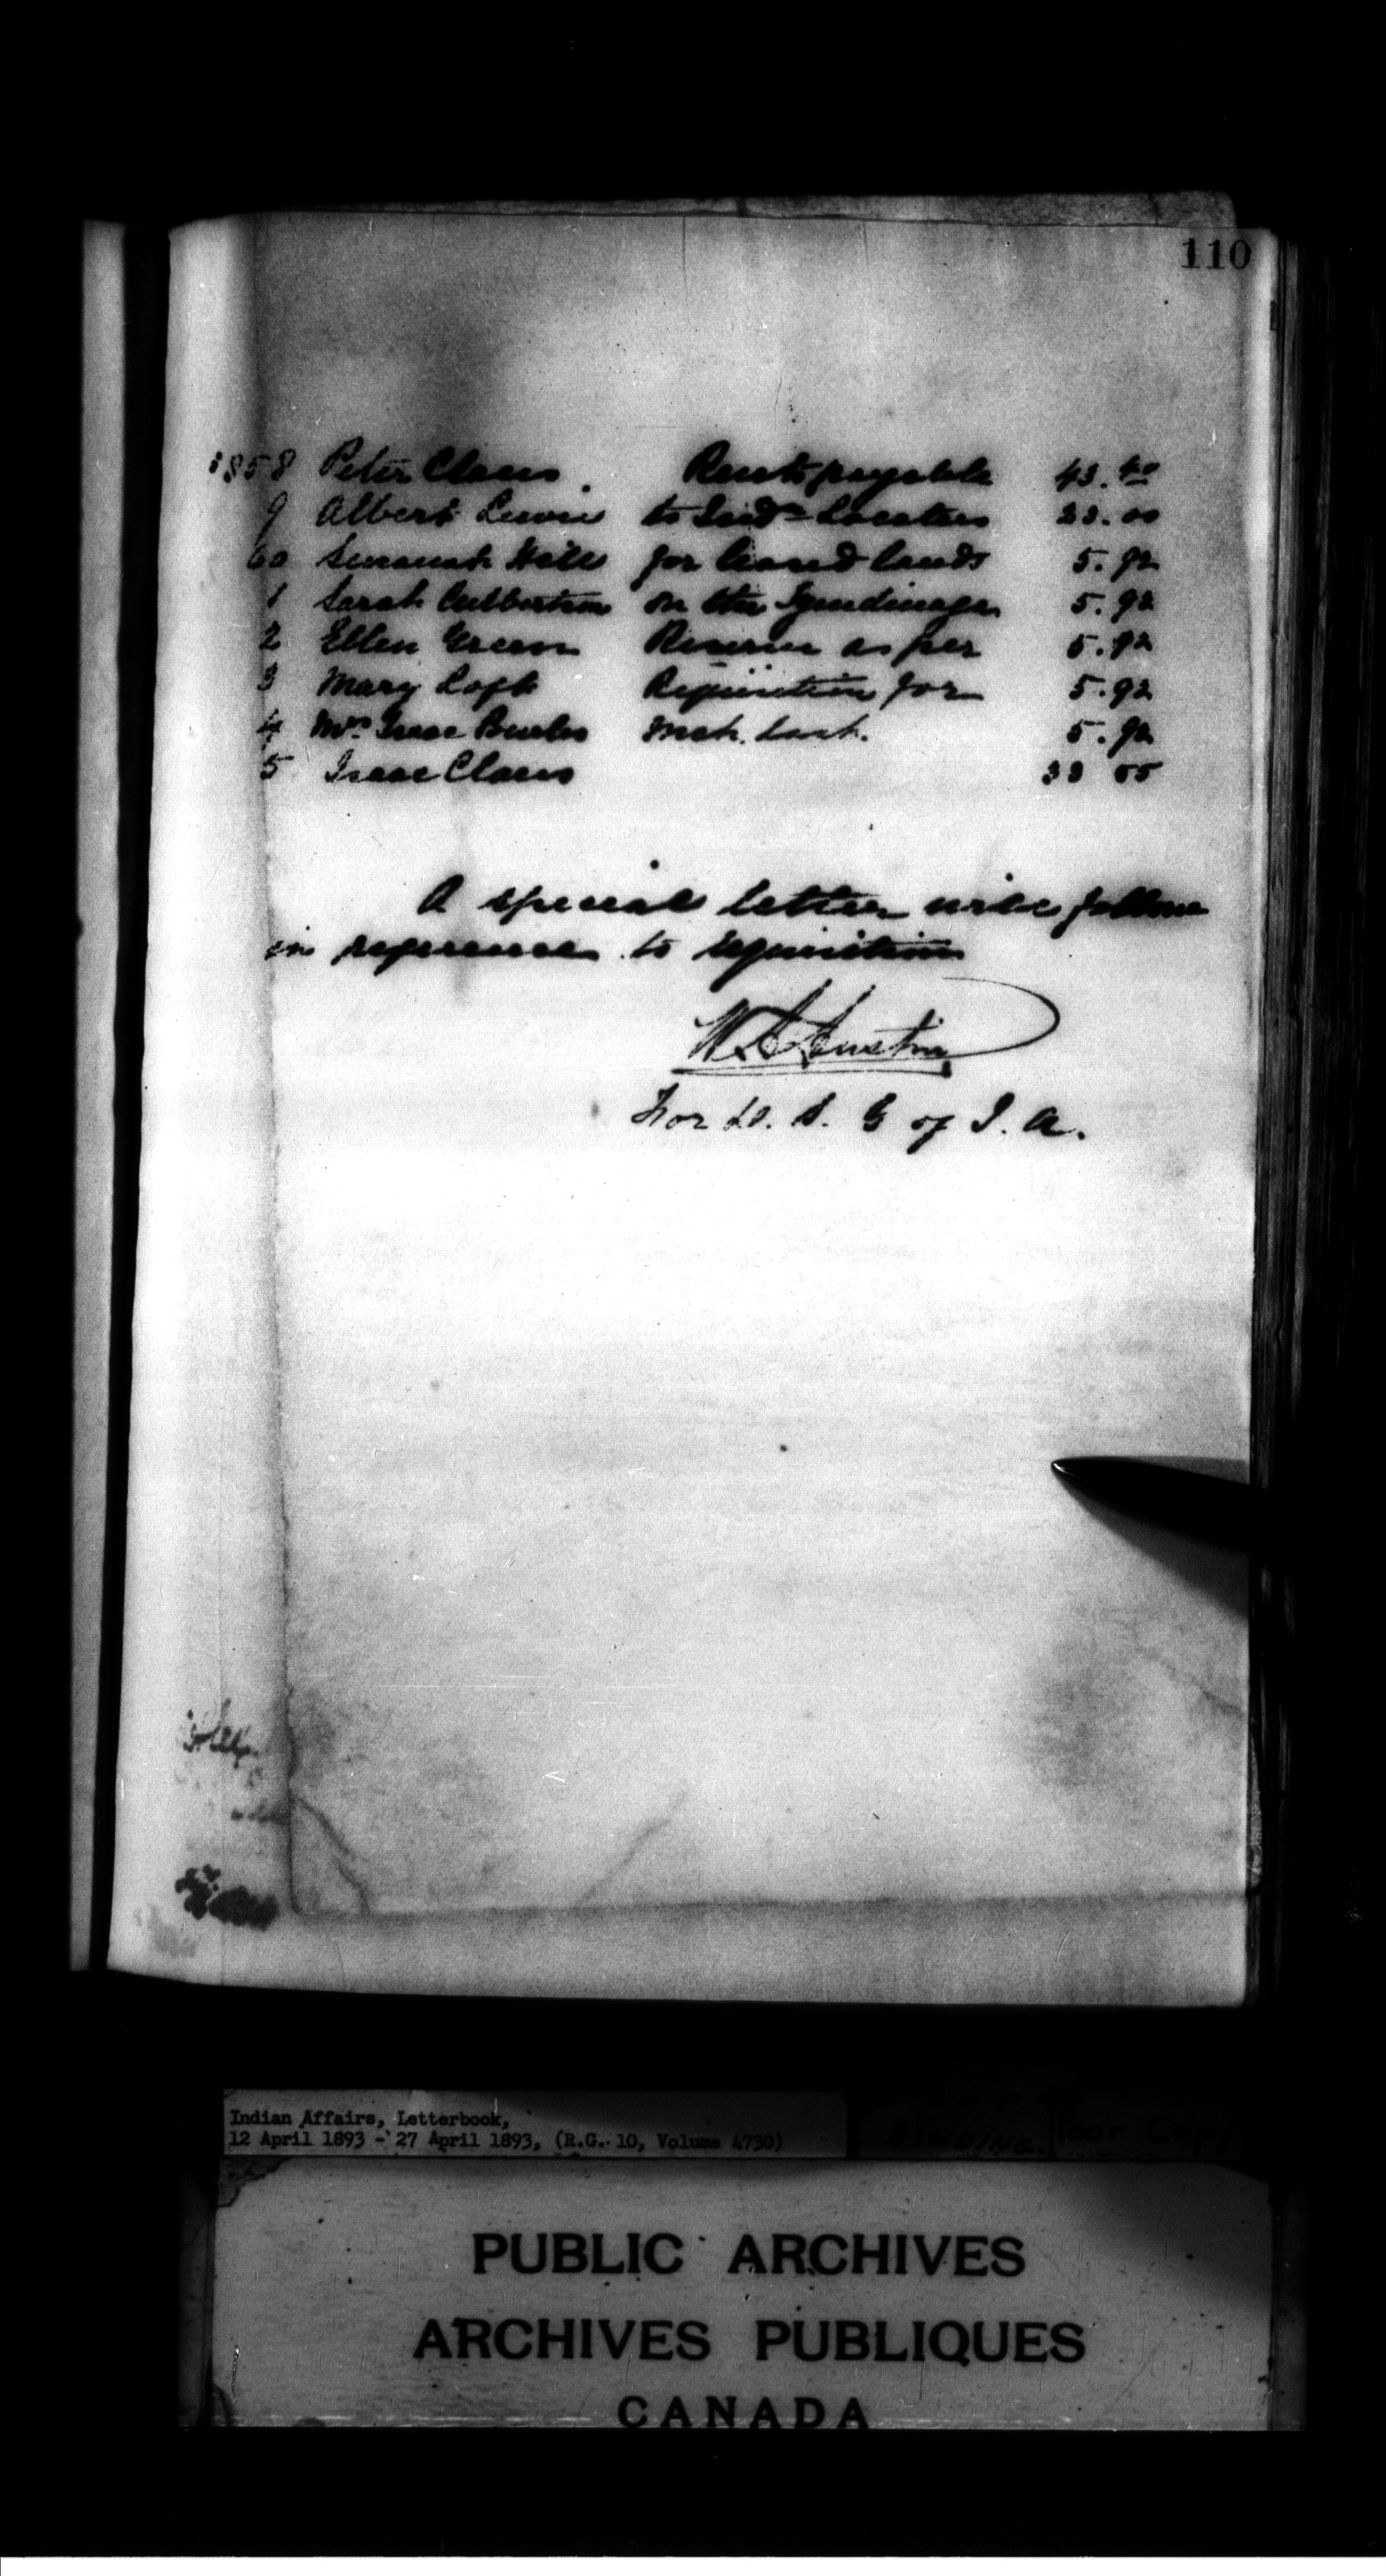 110
1858 Peter Claus Rents payable 43.40
9 Albert Lewis to Ind. Locatees 23.00
60 Susanah Hill for leased lands 5.92
1 Sarah Culbertson on the Tyendinaga 5.92
2 Ellen Green Reserve as per 5.92
3 Mary Loft Requisition for 5.92
4 Mrs Isaac Powles Mch. 5.92
5 Isaac Claus 33 55
A special letter will follow
in reference to requisition
W A Austin
For D. S. G of I. A.
Indian Affairs, Letterbook,
12 April 1893 - 27 April 1893, (R.G. 10, Volume 4730)
BINDING.
Copy
PUBLIC ARCHIVES
ARCHIVES PUBLIQUES
CANADA